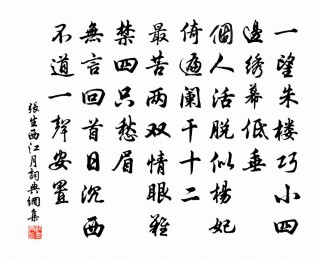 一望朱楼巧小四
边绣幕低垂
個人活脱似楊妃
倚遍阑干十二
最苦两双情眼難
禁四只愁眉
無言回首日沉西
不道一聲安置
張生西江月詞典網集